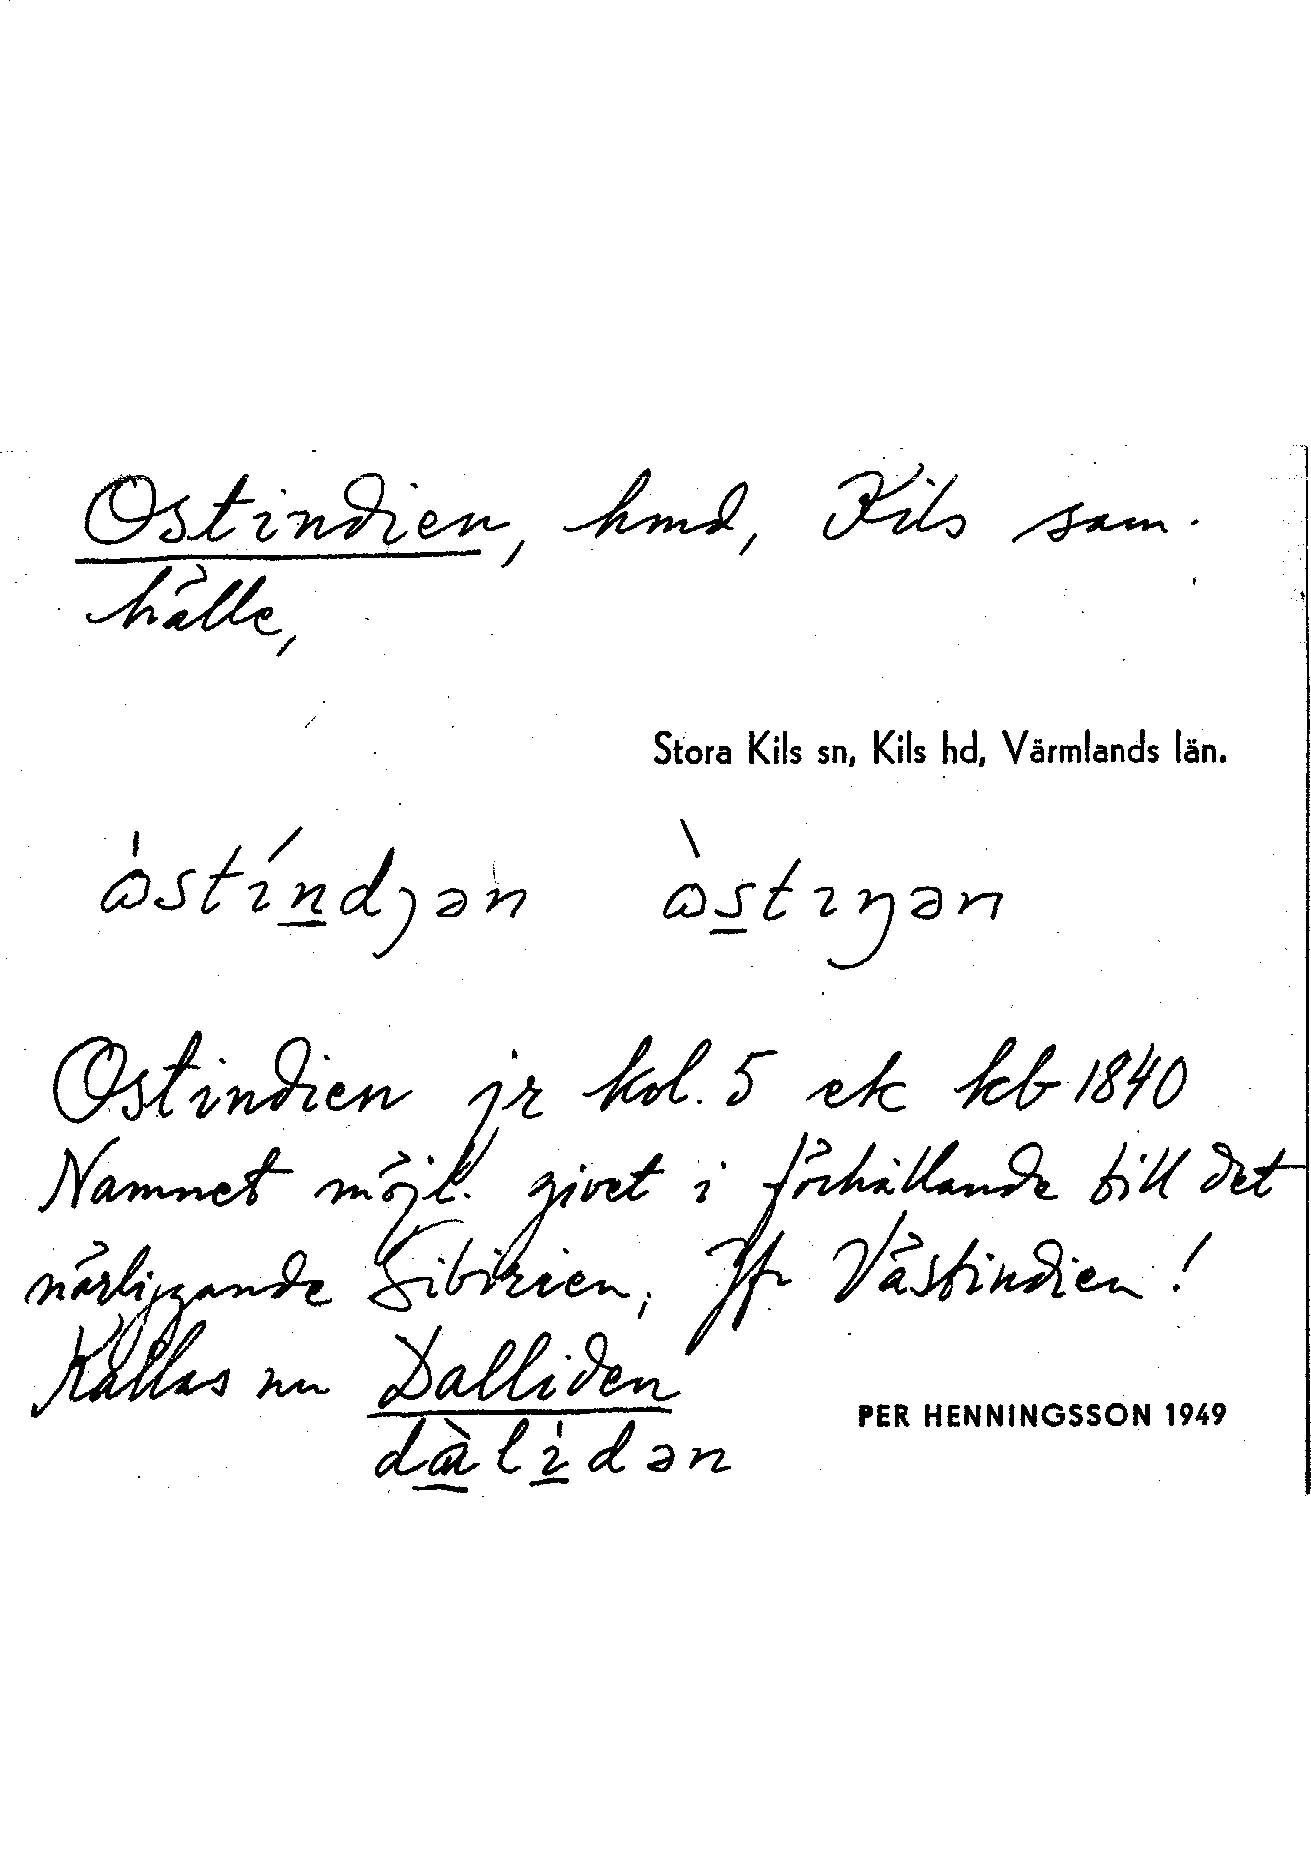 Ostindien, hmd, Kils sam-
hälle,
Stora Kils sn, Kils hd, Värmlands län.
òstíndjən òstıŋən
Ostindien jr kol. 5 ek kb 1840
Namnet möjl. givet i förhållande till det
närliggande Sibirien, Jfr Västindien!
Kallas nu Dalliden
PER HENNINGSSON 1949
dàlìdən